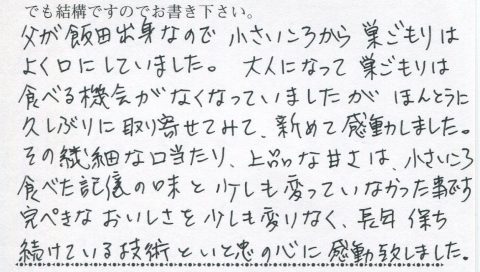 でも結構ですのでお書き下さい。
父が飯田出身なので 小さいころから 巣ごもりは
よく口にしていました。 大人になって 巣ごもりは
食べる機会がなくなっていましたが ほんとうに
久しぶりに 取り寄せてみて、新めて 感動しました。
その繊細な口当たり、上品な甘さは、小さいころ
食べた記憶の味と 少しも変っていなかった事です
完ぺきな おいしさを 少しも変りなく、長年 保ち
続けている技術と の心に 感動致しました。